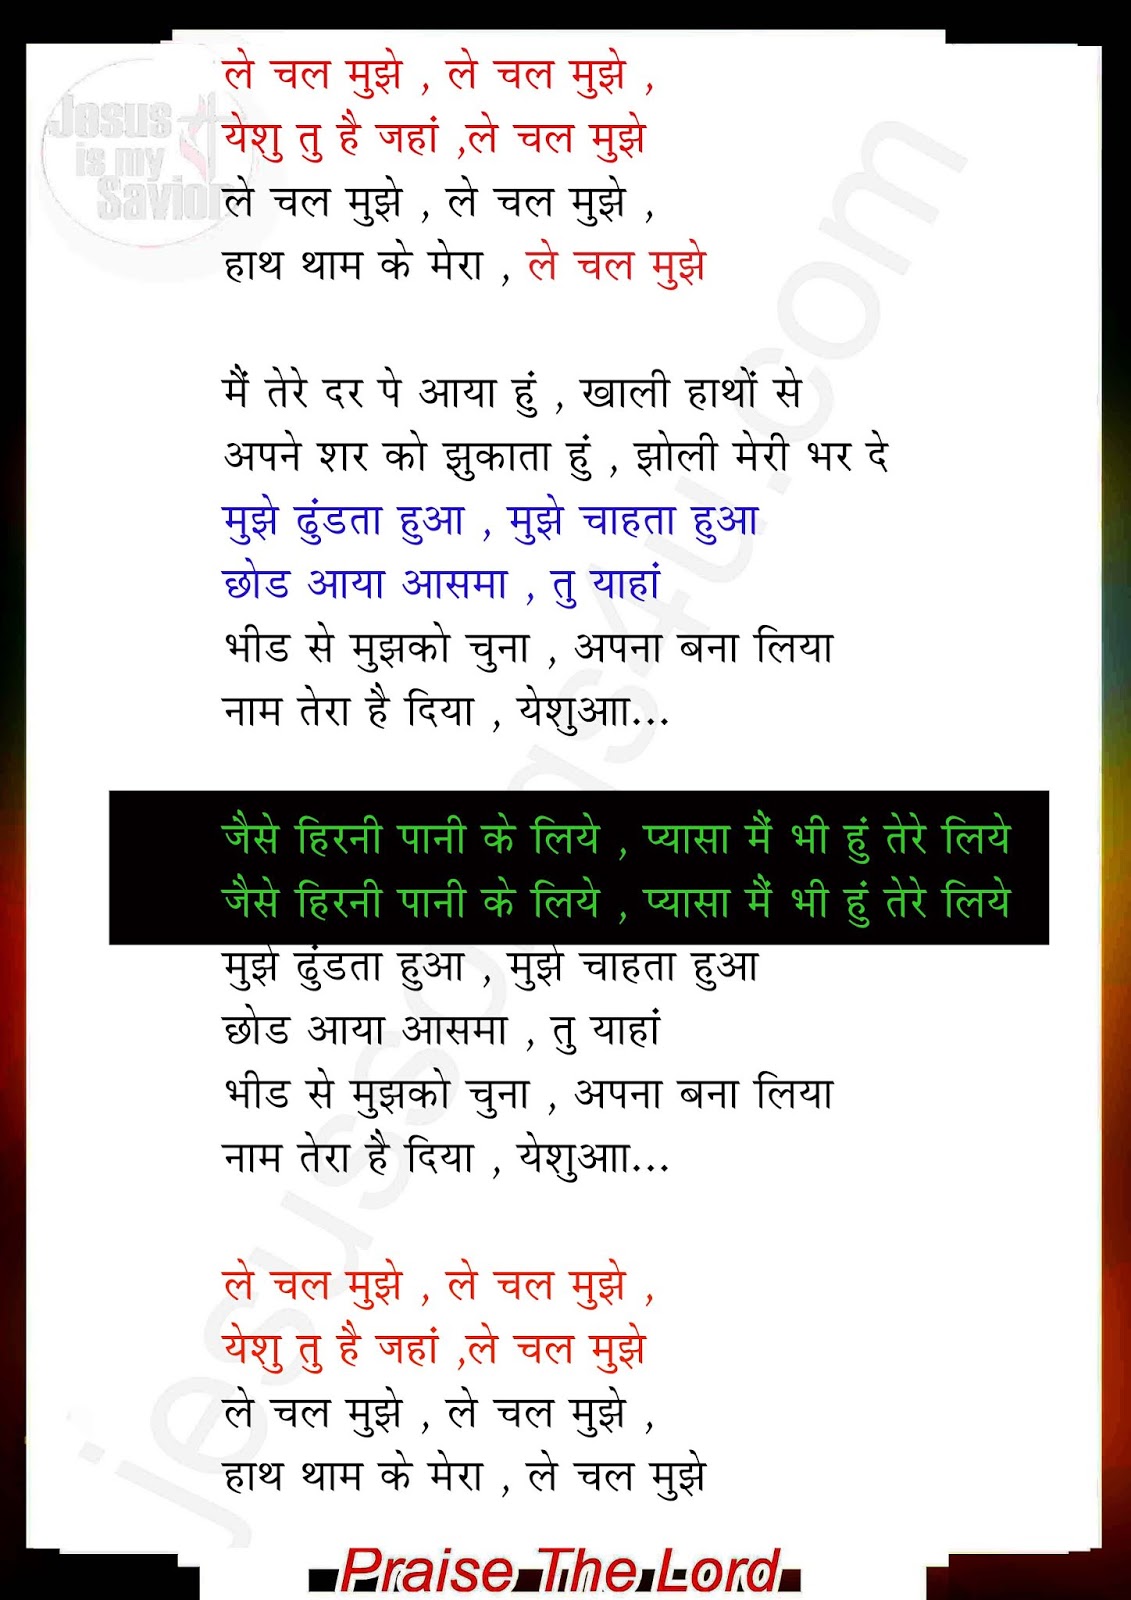 Jesus
is my
Savior
ले चल मुझे , ले चल मुझे ,
येशु तु है जहां ,ले चल मुझे
ले चल मुझे , ले चल मुझे ,
हाथ थाम के मेरा , ले चल मुझे
मैं तेरे दर पे आया हुं , खाली हाथों से
अपने शर को झुकाता हुं , झोली मेरी भर दे
मुझे ढुंडता हुआ , मुझे चाहता हुआ
छोड आया आसमा , तु याहां
भीड से मुझको चुना , अपना बना लिया
नाम तेरा है दिया , येशुआा...
जैसे हिरनी पानी के लिये , प्यासा मैं भी हुं तेरे लिये
जैसे हिरनी पानी के लिये , प्यासा मैं भी हुं तेरे लिये
मुझे ढुंडता हुआ , मुझे चाहता हुआ
छोड आया आसमा , तु याहां
भीड से मुझको चुना , अपना बना लिया
नाम तेरा है दिया , येशुआा...
ले चल मुझे , ले चल मुझे ,
येशु तु है जहां ,ले चल मुझे
ले चल मुझे , ले चल मुझे ,
हाथ थाम के मेरा , ले चल मुझे
jesussongs4u.com
Praise The Lord